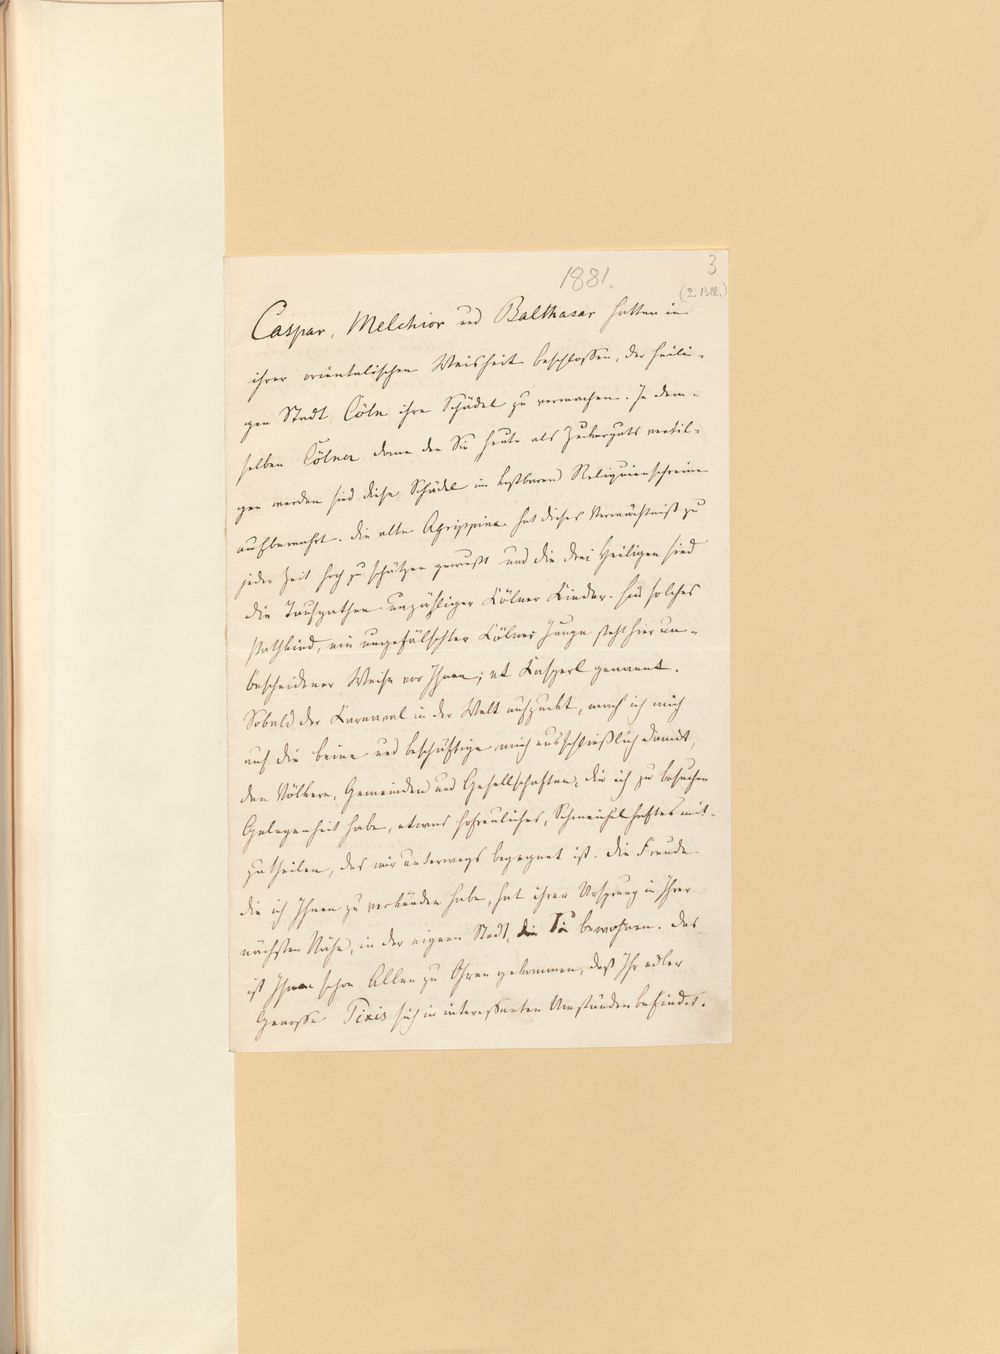 1881.
3
(2 Bll.)
Caspar, Melchior und Balthasar hatten in
ihrer orientalischen Weisheit beschlossen, der heili-
gen Stadt Cöln ihre Schädel zu vermachen. In dem-
selben Cölner Dome den Sie heute als vertil-
gen werden sind diese Schädel im kostbaren Reliquienschreine
aufbewahrt. Die alte Agrippina hat dieses Vermächtniß zu
jeder Zeit hoch zu schätzen gewußt und die drei Heiligen sind
die Taufpathen unzähliger Kölner Kinder. Ein solches
Pathkind, ein ungefälschter Kölner Junge steht hier un-
bescheidener Weise vor Ihnen; Kasperl genannt.
Sobald der Karneval in der Welt ausguckt, mach ich mich
auf die Beine und beschäftige mich ausschließlich damit,
den Völkern, Gemeinden und Gesellschaften, die ich zu besuchen
Gelegenheit habe, etwas Erfreuliches, Schmeichelhaftes mit-
zutheilen, das mir unterwegs begegnet ist. Die Freude
die ich Ihnen zu verkünden habe, hat ihren Ursprung in Ihrer
nächsten Nähe, in der eignen Stadt, die Sie bewohnen. Das
ist Ihnen schon Allen zu Ohren gekommen, daß Ihr edler
Genosse Tixis sich in interessanten Umständen befindet.